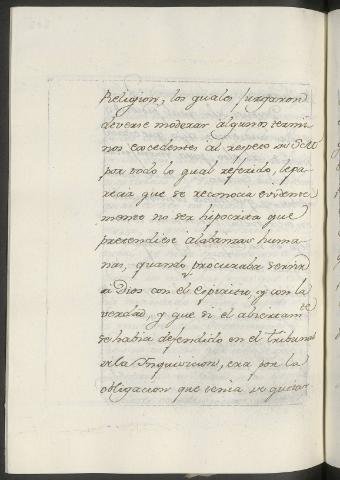 Religion, los quales juzgaron
deverse moderar algunos termi-
nos excedentes al respeto
por todo lo qual referido, lepa-
recia que se reconocia evidente
mente no ser hipocrita que
pretendiese alabanzas huma-
nas, quando procuraba servir
a Dios con el espiritu, y con la
verdad, y que si el abiertam.te
se habia defendido en el tribunal
de la Inquisicion, era por la
obligacion que tenia de